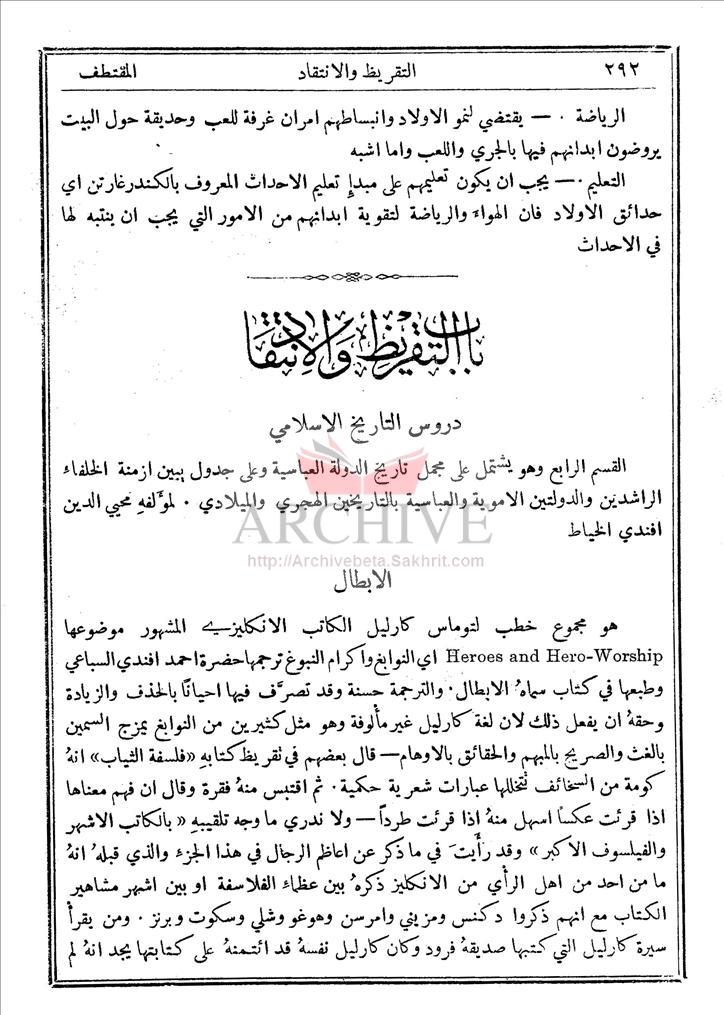 ٢٩٢ التقريظ والانتقاد المقتطف
الرياضة ٠ — يقتضي لنمو الاولاد وانبساطهم امران غرفة للعب وحديقة حول البيت
يروضون ابدانهم فيها بالجري واللعب واما اشبه
التعليم ٠ — يجب ان يكون تعليمهم على مبدإ تعليم الاحداث المعروف بالكندرغارتن اي
حدائق الاولاد فان الهواء والرياضة لتقوية ابدانهم من الامور التي يجب ان ينتبه لها
في الاحداث
باب التقريظ والانتقاد
دروس التاريخ الاسلامي
القسم الرابع وهو يشتمل على مجمل تاريخ الدولة العباسية وعلى جدول يبين ازمنة الخلفاء
الراشدين والدولتين الاموية والعباسية بالتاريخين الهجري والميلادي ٠ لمؤلفهِ محيي الدين
افندي الخياط
ARCHIVE
http://Archivebeta.Sakhrit.com
الابطال
هو مجموع خطب لتوماس كارليل الكاتب الانكليزي المشهور موضوعها
Heroes and Hero-Worship اي النوابغ واكرام النبوغ ترجمها حضرة احمد افندي السباعي
وطبعها في كتاب سماهُ الابطال ٠ والترجمة حسنة وقد تصرَّف فيها احيانًا بالحذف والزيادة
وحقهُ ان يفعل ذلك لان لغة كارليل غير مألوفة وهو مثل كثيرين من النوابغ يمزج السمين
بالغث والصريح بالمبهم والحقائق بالاوهام — قال بعضهم في تقريظ كتابهِ «فلسفة الثياب» انهُ
كومة من السخائف تتخللها عبارات شعرية حكمية ٠ ثم اقتبس منهُ فقرة وقال ان فهم معناها
اذا قرئت عكسًا اسهل منهُ اذا قرئت طردًا — ولا ندري ما وجه تلقيبهِ «بالكاتب الاشهر
والفيلسوف الاكبر» وقد رأيتَ في ما ذكر عن اعاظم الرجال في هذا الجزء والذي قبلهُ انهُ
ما من احد من اهل الرأي من الانكليز ذكرهُ بين عظماء الفلاسفة او بين اشهر مشاهير
الكتاب مع انهم ذكروا دكنس ومزيني وامرسن وهوغو وشلي وسكوت وبرنز ٠ ومن يقرأ
سيرة كارليل التي كتبها صديقهُ فرود وكان كارليل نفسهُ قد ائتمنهُ على كتابتها يجد انهُ لم